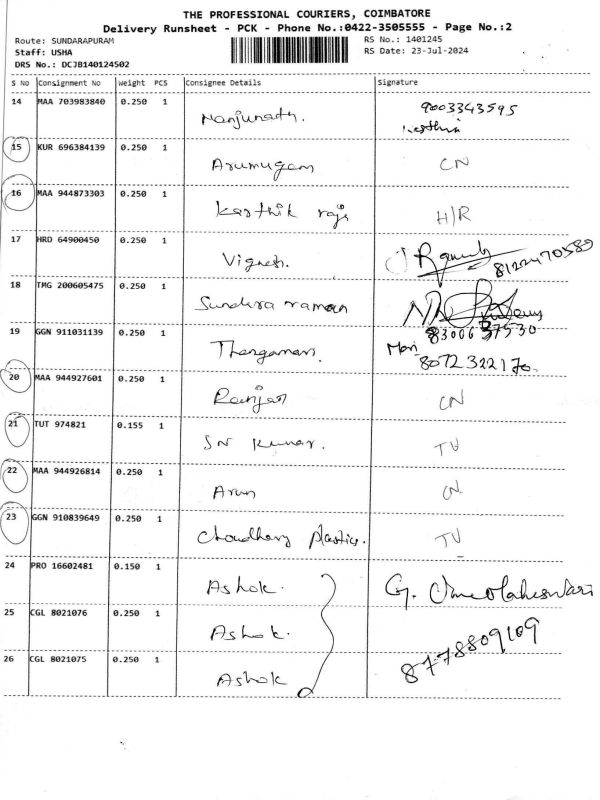 THE PROFESSIONAL COURIERS, COIMBATORE
Delivery Runsheet - PCK - Phone No.:0422-3505555 - Page No.:2
Route: SUNDARAPURAM RS No.: 1401245
Staff: USHA RS Date: 23-Jul-2024
DRS No.: DCJB140124502
S No Consignment No Weight PCS Consignee Details Signature
14 MAA 703983840 0.250 1 Nanjunath. 9003343595
15 KUR 696384139 0.250 1 Arumugam CN
16 MAA 944873303 0.250 1 Karthik raja H/R
17 HRD 64900450 0.250 1 Vignesh. 8122470589
18 TMG 200605475 0.250 1 Sundara raman
19 GGN 911031139 0.250 1 Thangamani. 8300637530
Mani 8072322170.
20 MAA 944927601 0.250 1 Ranjan CN
21 TUT 974821 0.155 1 SN Kumar. TU
22 MAA 944926814 0.250 1 Arun CN
23 GGN 910839649 0.250 1 Choudhary plastics. TU
24 PRO 16602481 0.150 1 Ashok. G. Umamaheswari
25 CGL 8021076 0.250 1 Ashok. 8778809109
26 CGL 8021075 0.250 1 Ashok